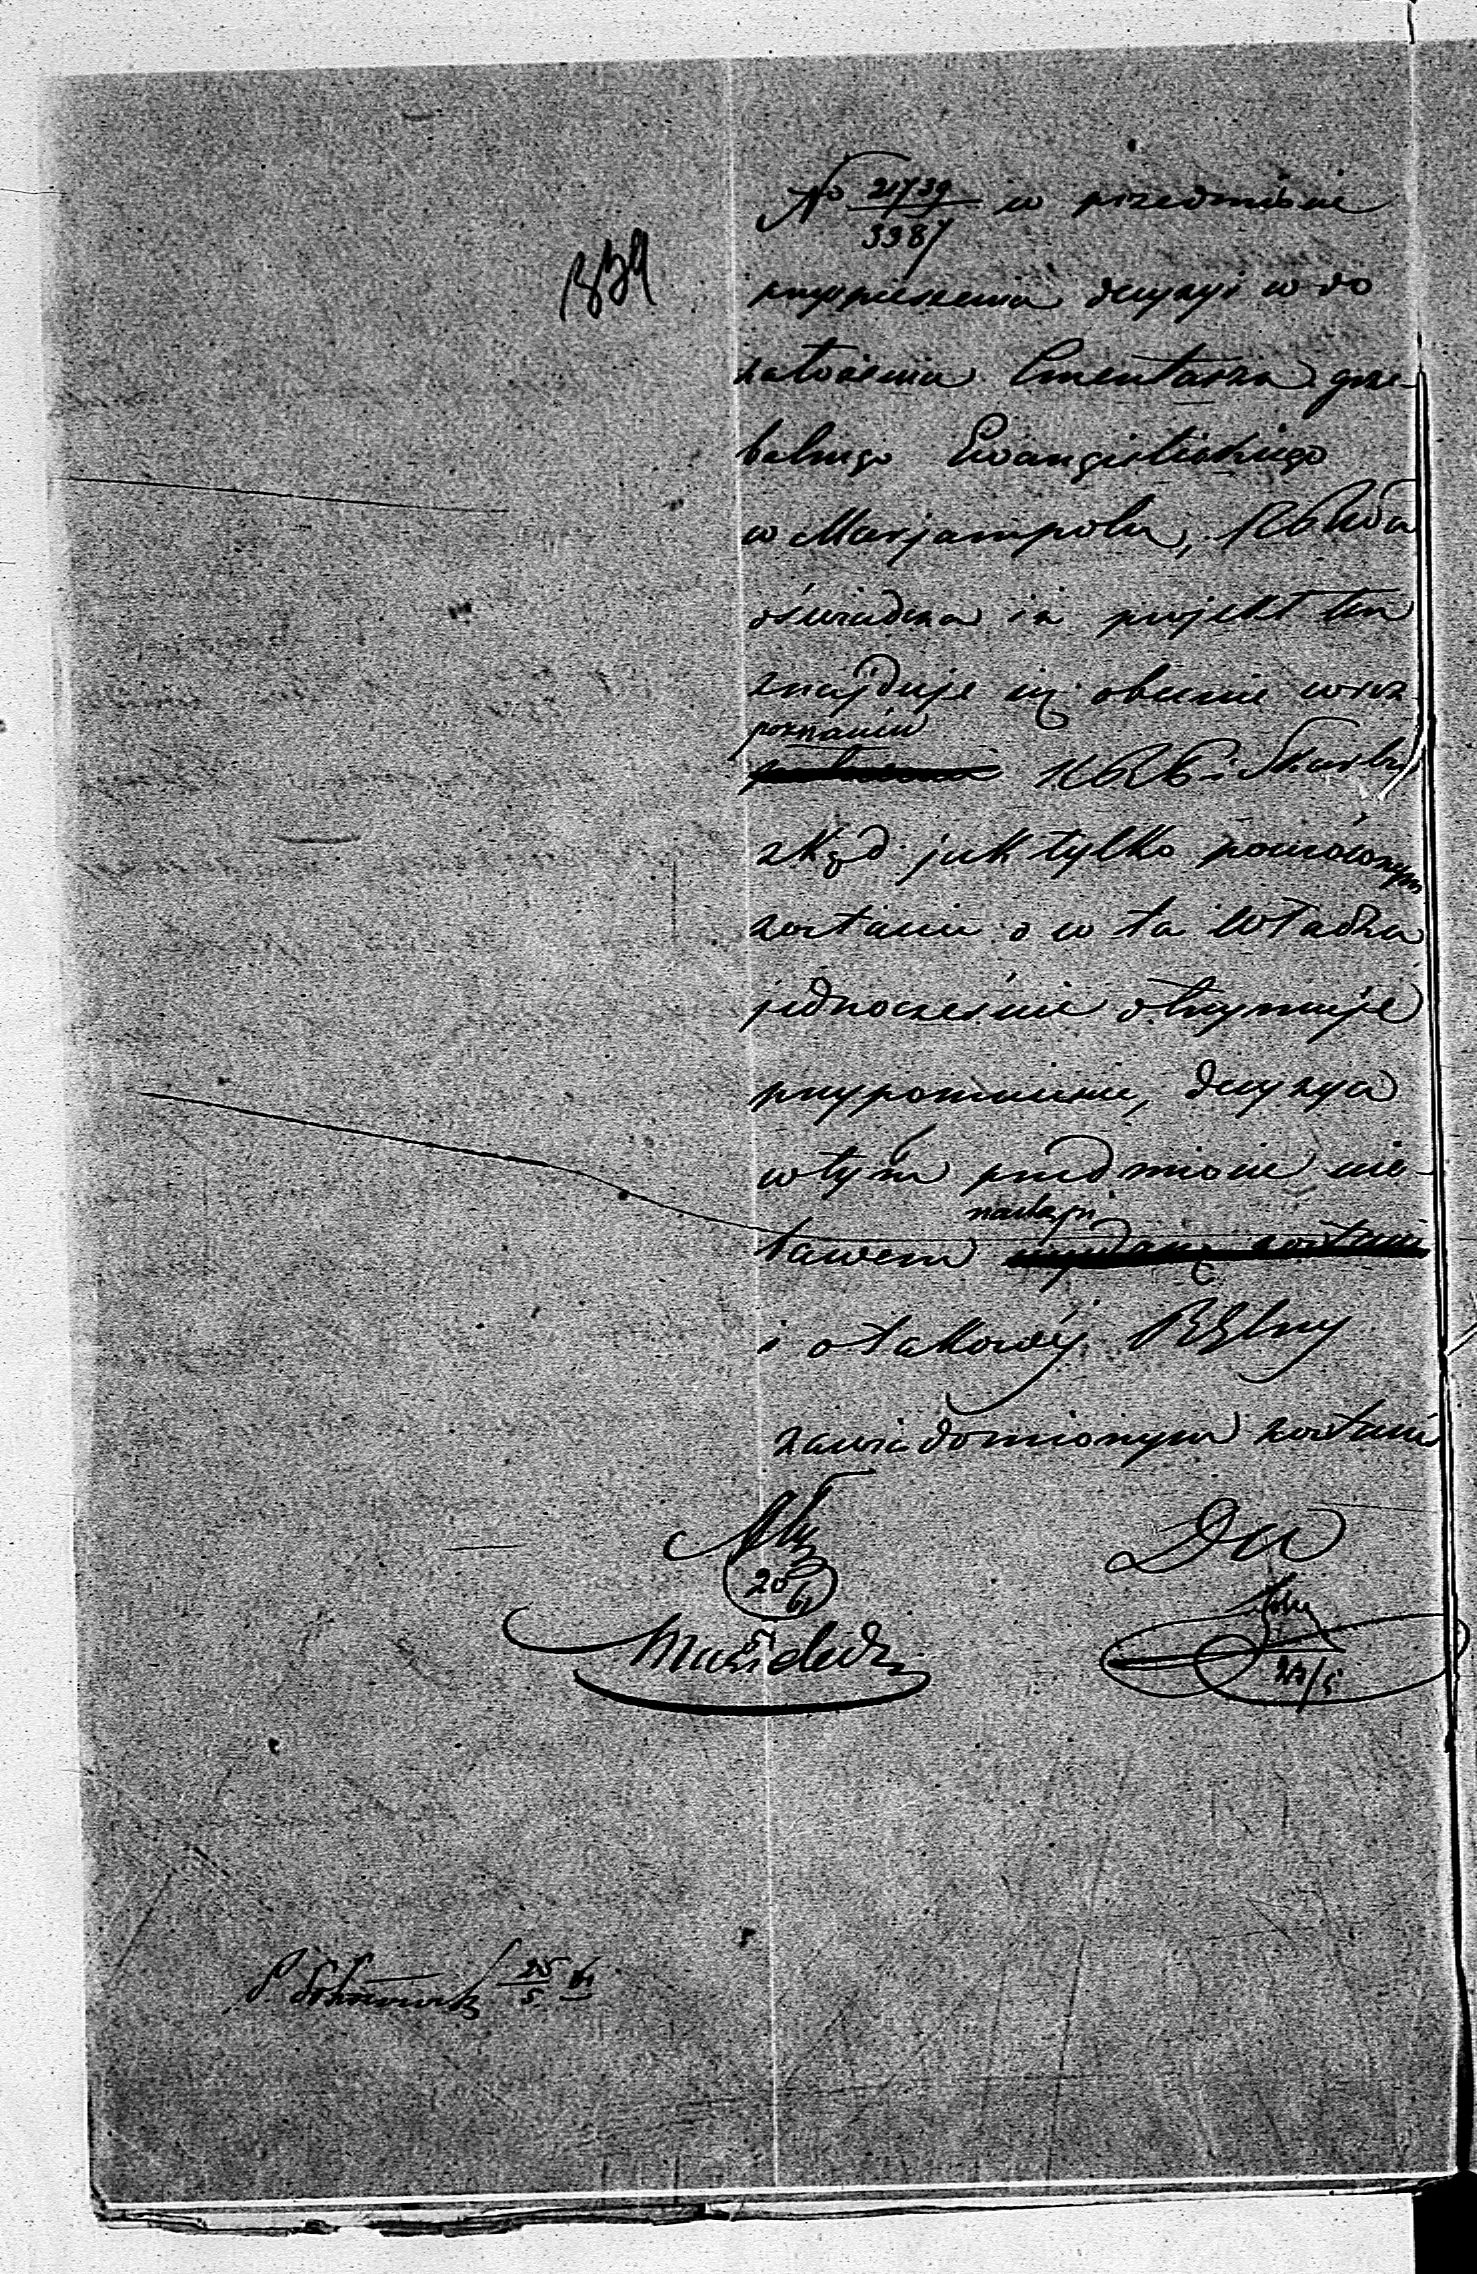 No 21739/3387 w przedmiocie
przyspieszenia decyzyi wdo
założenia Cmentarza grze-
balnego Ewangielickiego
w Marjampolu,
oświadcza iż projekt ten
znajduje się obecnie w roz
poznaniu
Skarbu
zkąd jak tylko powróconym
zostanie o co ta Władza
jednocześnie otrzymuje
przypomnienie, decyzya
w tym przedmiocie nie-
nastąpi
bawem wydaną zostanie
i o takowéj
zawiadomionym zostanie
20
61
23/5
25/5 61